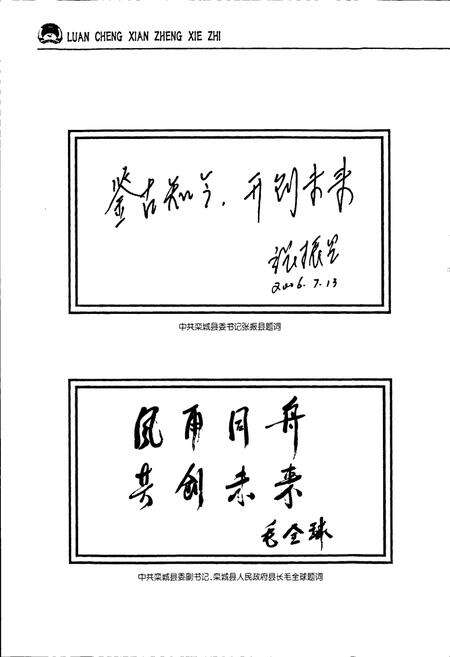 LUAN CHENG XIAN ZHENG XIE ZHI
鉴古知今，开创未来
张振呈
2006.7.13
中共栾城县委书记张振县题词
风雨同舟
共创未来
毛全球
中共栾城县委副书记、栾城县人民政府县长毛全球题词